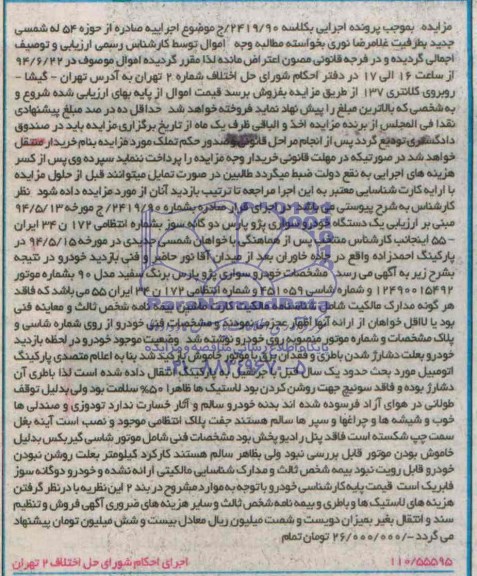 مزایده بموجب پرونده اجرایی بکلاسه ۲۴۱۹/۹۰/ج موضوع اجراییه صادره از حوزه ۵۴ له شمسی
جدید بطرفیت غلامرضا نوری بخواسته مطالبه وجه اموال توسط کارشناس رسمی ارزیابی و توصیف
اجمالی گردیده و در فرجه قانونی مصون اعتراض مانده لذا مقرر گردیده اموال موصوف در ۹۴/۶/۲۲
از ساعت ۱۶ الی ۱۷ در دفتر احکام شورای حل اختلاف شماره ۲ تهران به آدرس تهران - گیشا -
روبروی کلانتری ۱۳۷ از طریق مزایده بفروش برسد قیمت اموال از پایه بهای ارزیابی شده شروع و
به شخصی که بالاترین مبلغ را پیش نهاد نماید فروخته خواهد شد حداقل ده در صد مبلغ پیشنهادی
نقدا فی المجلس از برنده مزایده اخذ و الباقی ظرف یک ماه از تاریخ برگزاری مزایده باید در صندوق
دادگستری تودیع گردد پس از انجام مراحل قانونی و صدور حکم تملک مورد مزایده بنام خریدار منتقل
خواهد شد در صورتیکه در مهلت قانونی خریدار وجه مزایده را پرداخت ننماید سپرده وی پس از کسر
هزینه های اجرایی به نفع دولت ضبط میگردد طالبین در صورت تمایل میتوانند قبل از حلول مزایده
با ارایه کارت شناسایی معتبر به این اجرا مراجعه تا ترتیب بازدید آنان از مورد مزایده داده شود نظر
کارشناس به شرح پیوستی می باشد در اجرای قرار صادره بشماره ۲۴۱۹/۹۰/ج مورخه ۹۴/۵/۱۳
مبنی بر ارزیابی یک دستگاه خودرو سواری پژو پارس دو گانه سوز بشماره انتظامی ۱۷۲ ن ۳۴ ایران
- ۵۵ اینجانب کارشناس منتخب پس از هماهنگی با خواهان شمسی جدیدی در مورخه ۹۴/۵/۱۵ در
پارکینگ احمدزاده واقع در جاده خاوران بعد از میدان آقا نور حاضر و فنی بازدید خودرو در نتیجه
بشرح زیر به آگهی می رسد مشخصات خودرو سواری پژو پارس برنگ سفید مدل ۹۰ بشماره موتور
۱۲۴۹۰۰۱۵۴۹۲ و شماره شاسی ۴۵۱۰۵۹ و شماره انتظامی ۱۷۲ ن ۳۴ ایران ۵۵ می باشد که فاقد
هر گونه مدارک مالکیت شامل شناسنامه مالکیت کارت ماشین بیمه نامه شخص ثالث و معاینه فنی
بود یا لااقل خواهان از ارائه آنها اظهار عجز می نمودند و مشخصات فنی خودرو از روی شماره شاسی و
پلاک مشخصات و شماره موتور منصوبه روی خودرو نوشته شد وضعیت موجود خودرو در لحظه بازدید
خودرو بعلت دشارژ شدن باطری و فقدان برق با موتور خاموش بازدید شد بنا به اعلام متصدی پارکینگ
اتومبیل مورد بحث حدود یک سال قبل با جرثقیل به پارکینگ انتقال داده شده است لذا باطری آن
دشارژ بوده و فاقد سوئیچ جهت روشن کردن بود لاستیک ها ظاهرا ۵۰٪ سلامت بود ولی بدلیل توقف
طولانی در هوای آزاد فرسوده شده اند بدنه خودرو سالم و آثار خسارت ندارد تودوزی و صندلی ها
خوب و شیشه ها و چراغها و سپر ها سالم هستند جفت پلاک انتظامی موجود و نصب است آینه بغل
سمت چپ شکسته است فاقد پنل رادیو پخش بود مشخصات فنی شامل موتور شاسی گیربکس بدلیل
خاموش بودن موتور قابل بررسی نبود ولی بظاهر سالم هستند کارکرد کیلومتر بعلت روشن نبودن
خودرو قابل رویت نبود بیمه شخص ثالث و مدارک شناسایی مالکیتی ارائه نشده و خودرو دوگانه سوز
فابریک است قیمت پایه کارشناسی خودرو با توجه به موارد مشروح در بند ۲ این نظریه با در نظر گرفتن
هزینه های لاستیک ها و باطری و بیمه نامه شخص ثالث و سایر هزینه های ضروری آگهی فروش و تنظیم
سند و انتقال بغیر بمیزان دویست و شصت میلیون ریال معادل بیست و شش میلیون تومان پیشنهاد
می گردد -/۲۶/۰۰۰/۰۰۰ تومان تمام
۱۱۰/۵۵۵۹۵ اجرای احکام شورای حل اختلاف ۲ تهران